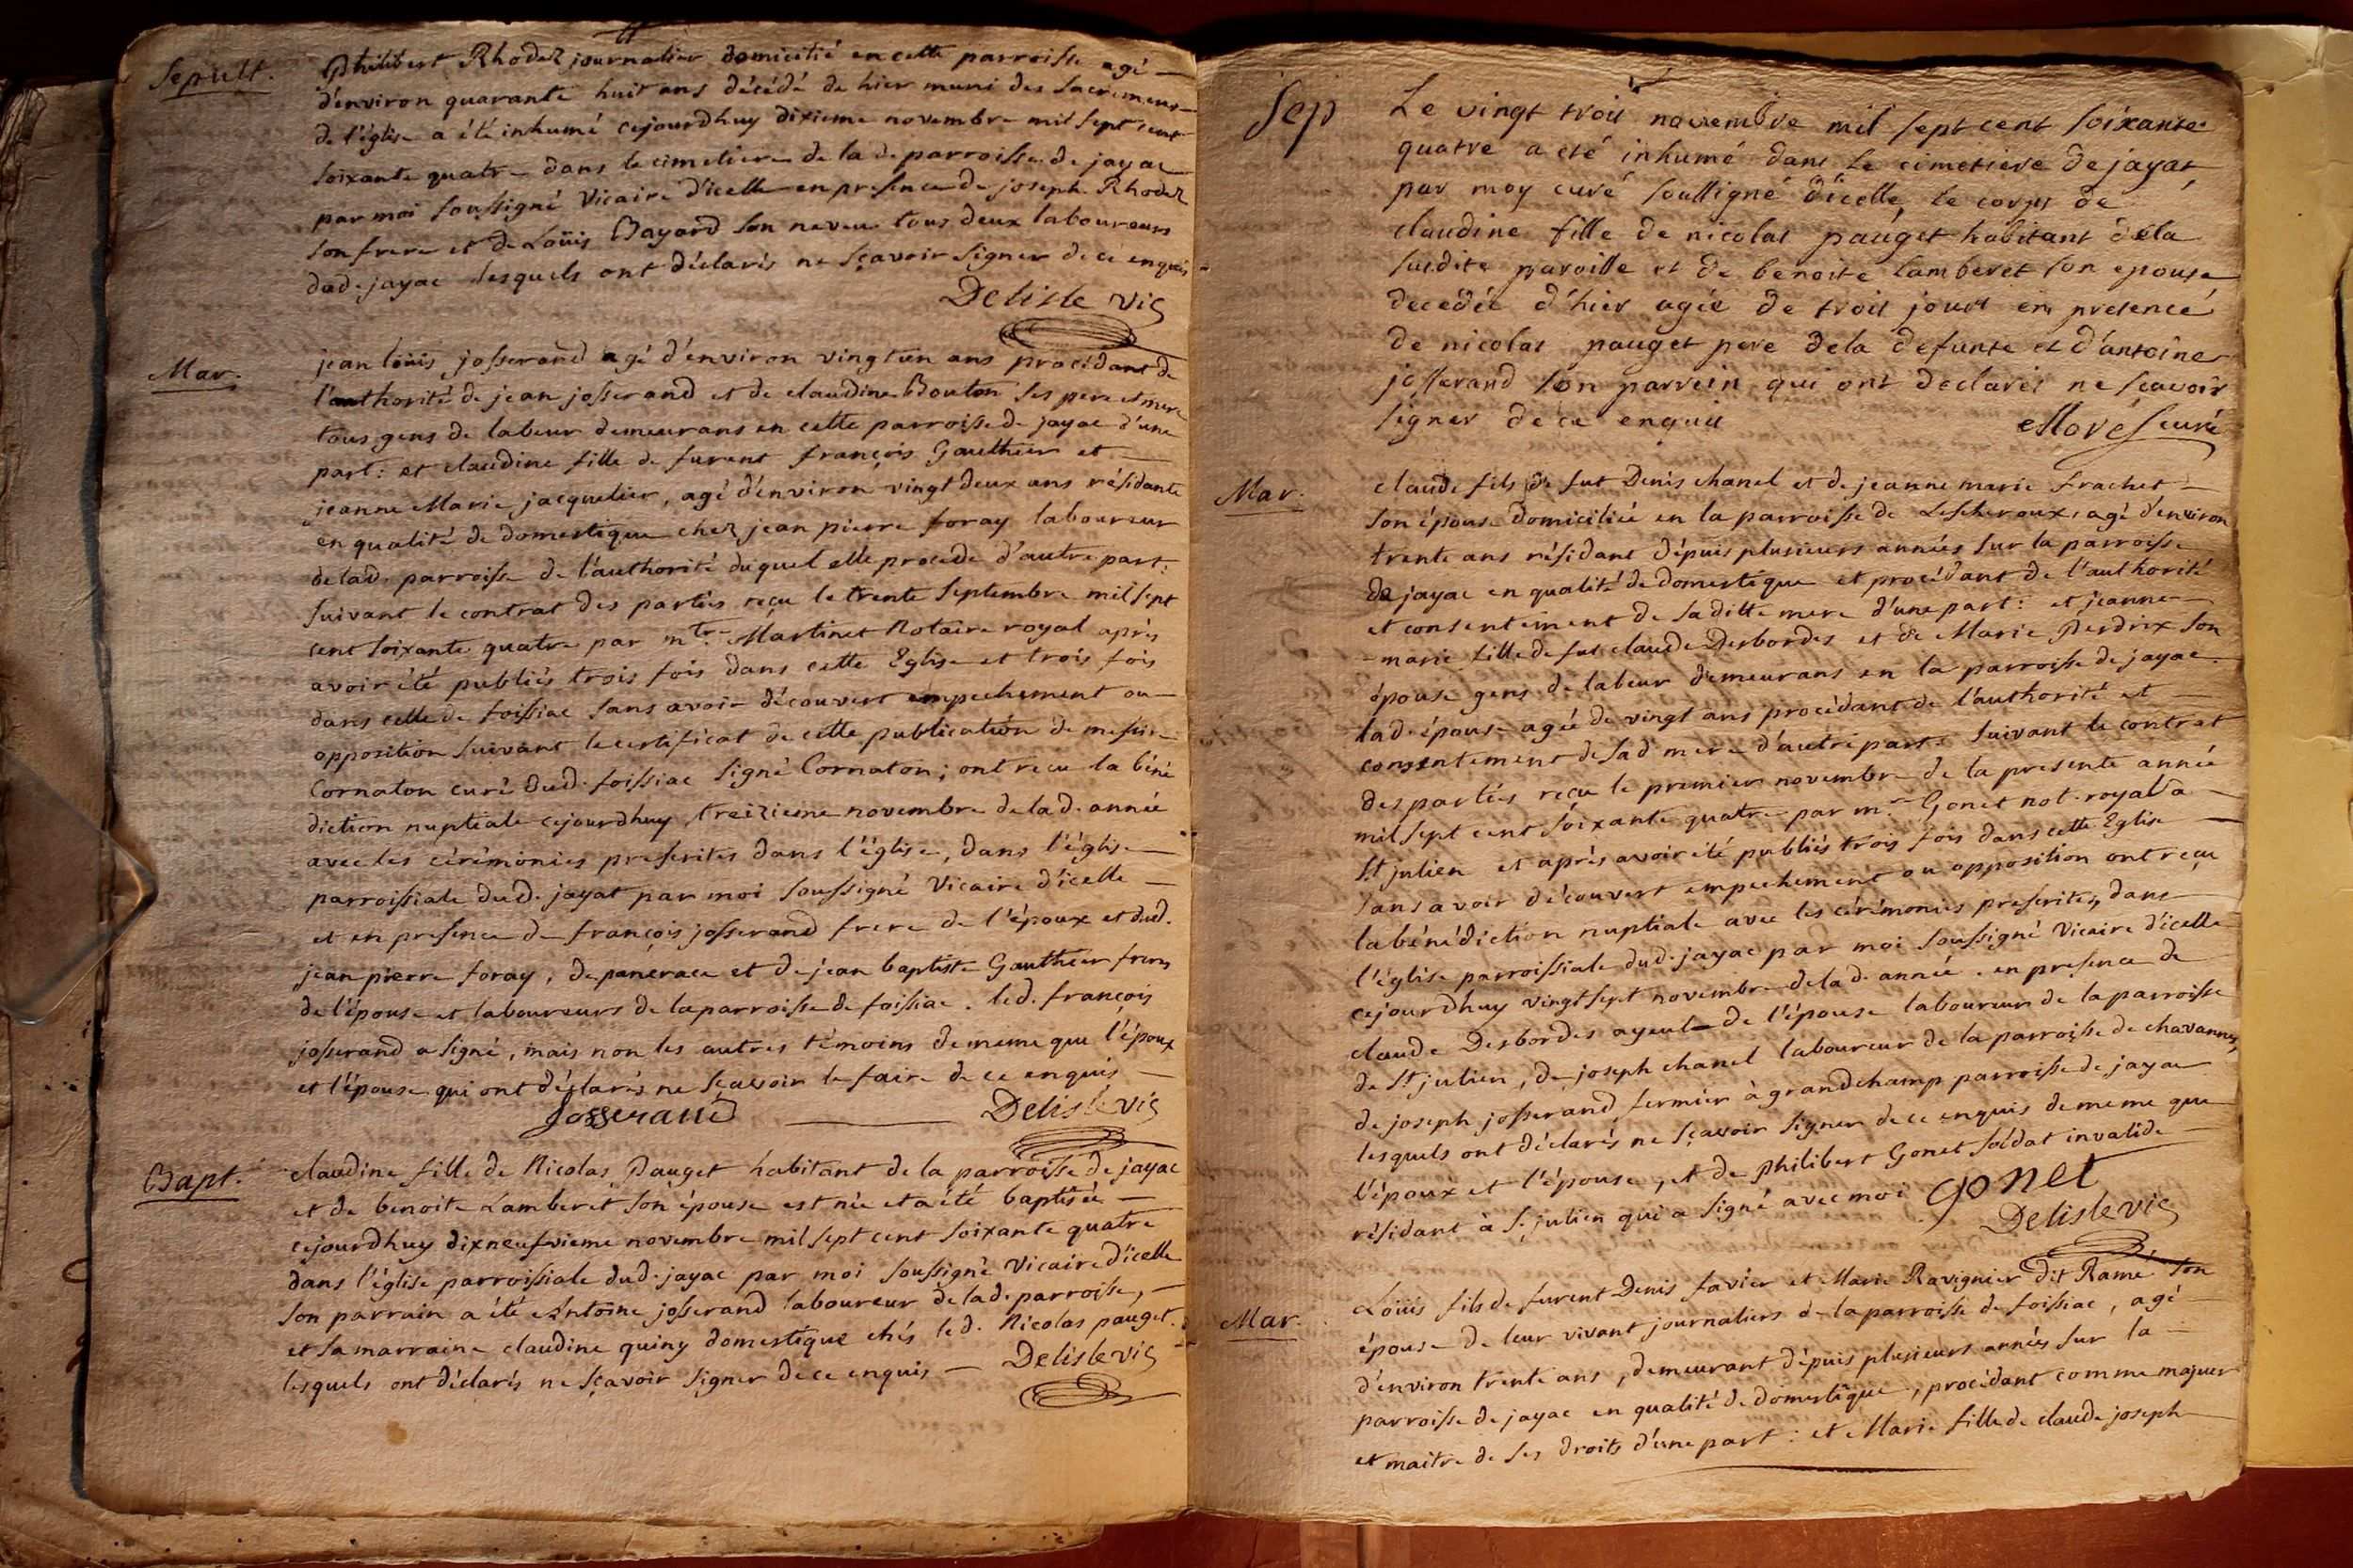 Sepult.
Philibert Rhodez journalier domicilié en cette parroisse agé
d'environ quarante huit ans décédé de hier muni des sacremens
de l'église a été inhumé cejourdhuy dixieme novembre mil sept cent
soixante quatre dans le cimetiere de la d. parroisse de jayac
par moi soussigné Vicaire d'icelle en presence de joseph Rhodez
son frere et de Loüis Bayard son neveu tous deux laboureurs
dud. jayac lesquels ont déclarés ne sçavoir signer de ce enquis
Delisle vic
Mar.
jean loüis josserand agé d'environ vingt un ans procédant de
l'authorité de jean josserand et de claudine Bouton ses pere et mere
tous gens de labeur demeurans en cette parroisse de jayac d'une
part: et claudine fille de furent françois Gauthier et
jeanne Marie jacquelier, agé d'environ vingt deux ans résidante
en qualité de domestique chez jean pierre foray laboureur
de lad. parroisse de l'authorité duquel elle procede d'autre part:
suivant le contrat des parties reçu le trente septembre mil sept
cent soixante quatre par mtre Martinet Notaire royal après
avoir été publiés trois fois dans cette Eglise et trois fois
dans celle de foissiac sans avoir découvert empechement ou
opposition suivant le certificat de cette publication de messire
Cornaton curé dud. foissiac signé Cornaton; ont reçu la béné
diction nuptiale cejourdhuy treizieme novembre de lad. année
avec les cérémonies prescrites dans l'église, dans l'église
parroissiale dud. jayat par moi soussigné Vicaire d'icelle
et en presence de françois josserand frere de l'époux et dud.
jean pierre foray, de pancrace et de jean baptiste Gauthier freres
de l'épouse et laboureurs de la parroisse de foissiac. led. françois
josserand a signé, mais non les autres témoins de meme que l'époux
et l'épouse qui ont déclarés ne sçavoir le faire de ce enquis
Josserand Delisle vic
Bapt.
claudine fille de Nicolas Pauget habitant de la parroisse de jayac
et de benoite Lamberet son épouse est née et a été baptisée
cejourdhuy dixneufvieme novembre mil sept cent soixante quatre
dans l'église parroissiale dud. jayac par moi soussigné Vicaire d'icelle
son parrain a été Antoine josserand laboureur de lad. parroisse,
et sa marraine claudine quiny domestique chés led. Nicolas pauget.
lesquels ont déclarés ne sçavoir signer de ce enquis Delisle vic
Sep
Le vingt trois novembre mil sept cent soixante
quatre a eté inhumé dans le cimetiere de jayat
par moy curé soussigné d'icelle, le corps de
claudine fille de nicolas pauget habitant de la
susdite paroisse et de benoite lamberet son epouse
decedée d'hier agée de trois jours en presence
de nicolas pauget pere de la defunte et d'antoine
josserand son parrein qui ont declarés ne scavoir
signer de ce enquis Morel curé
Mar.
claude fils de fut Denis chanel et de jeanne marie Frachet
son épouse domiciliée en la parroisse de Lescheroux, agé d'environ
trente ans résidant dépuis plusieurs années sur la parroisse
de jayac en qualité de domestique et procédant de l'authorité
et consentement de sa ditte mere d'une part: et jeanne
marie fille de fut claude Desbordes et de Marie Perdrix son
épouse gens de labeur demeurans en la parroisse de jayac.
lad. épouse agée de vingt ans procédant de l'authorité et
consentement de sad mere d'autre part. suivant le contrat
des parties reçu le premier novembre de la presente année
mil sept cent soixante quatre par mre Gonet not. royal a
St julien et après avoir été publiés trois fois dans cette Eglise
sans avoir découvert empechement ou opposition ont reçu
la bénédiction nuptiale avec les cérémonies prescrites, dans
l'église parroissiale dud. jayac par moi soussigné Vicaire d'icelle
cejourdhuy vingt sept novembre de lad. année. en presence de
claude Desbordes ayeul de l'épouse laboureur de la parroisse
de St julien, de joseph chanel laboureur de la parroisse de chavannes,
de joseph josserand fermier à grandchamp parroisse de jayac
lesquels ont déclarés ne sçavoir signer de ce enquis de meme que
l'époux et l'épouse, et de Philibert Gonet soldat invalide
résidant à St julien qui a signé avec moi gonet
Delisle vic
Mar.
Loüis fils de furent Denis favier et Marie Ravignier dit Ramé son
épouse de leur vivant journaliers de la parroisse de foissiac, agé
d'environ trente ans, demeurant dépuis plusieurs années sur la
parroisse de jayac en qualité de domestique, procédant comme majeur
et maitre de ses droits d'une part: et Marie fille de claude joseph